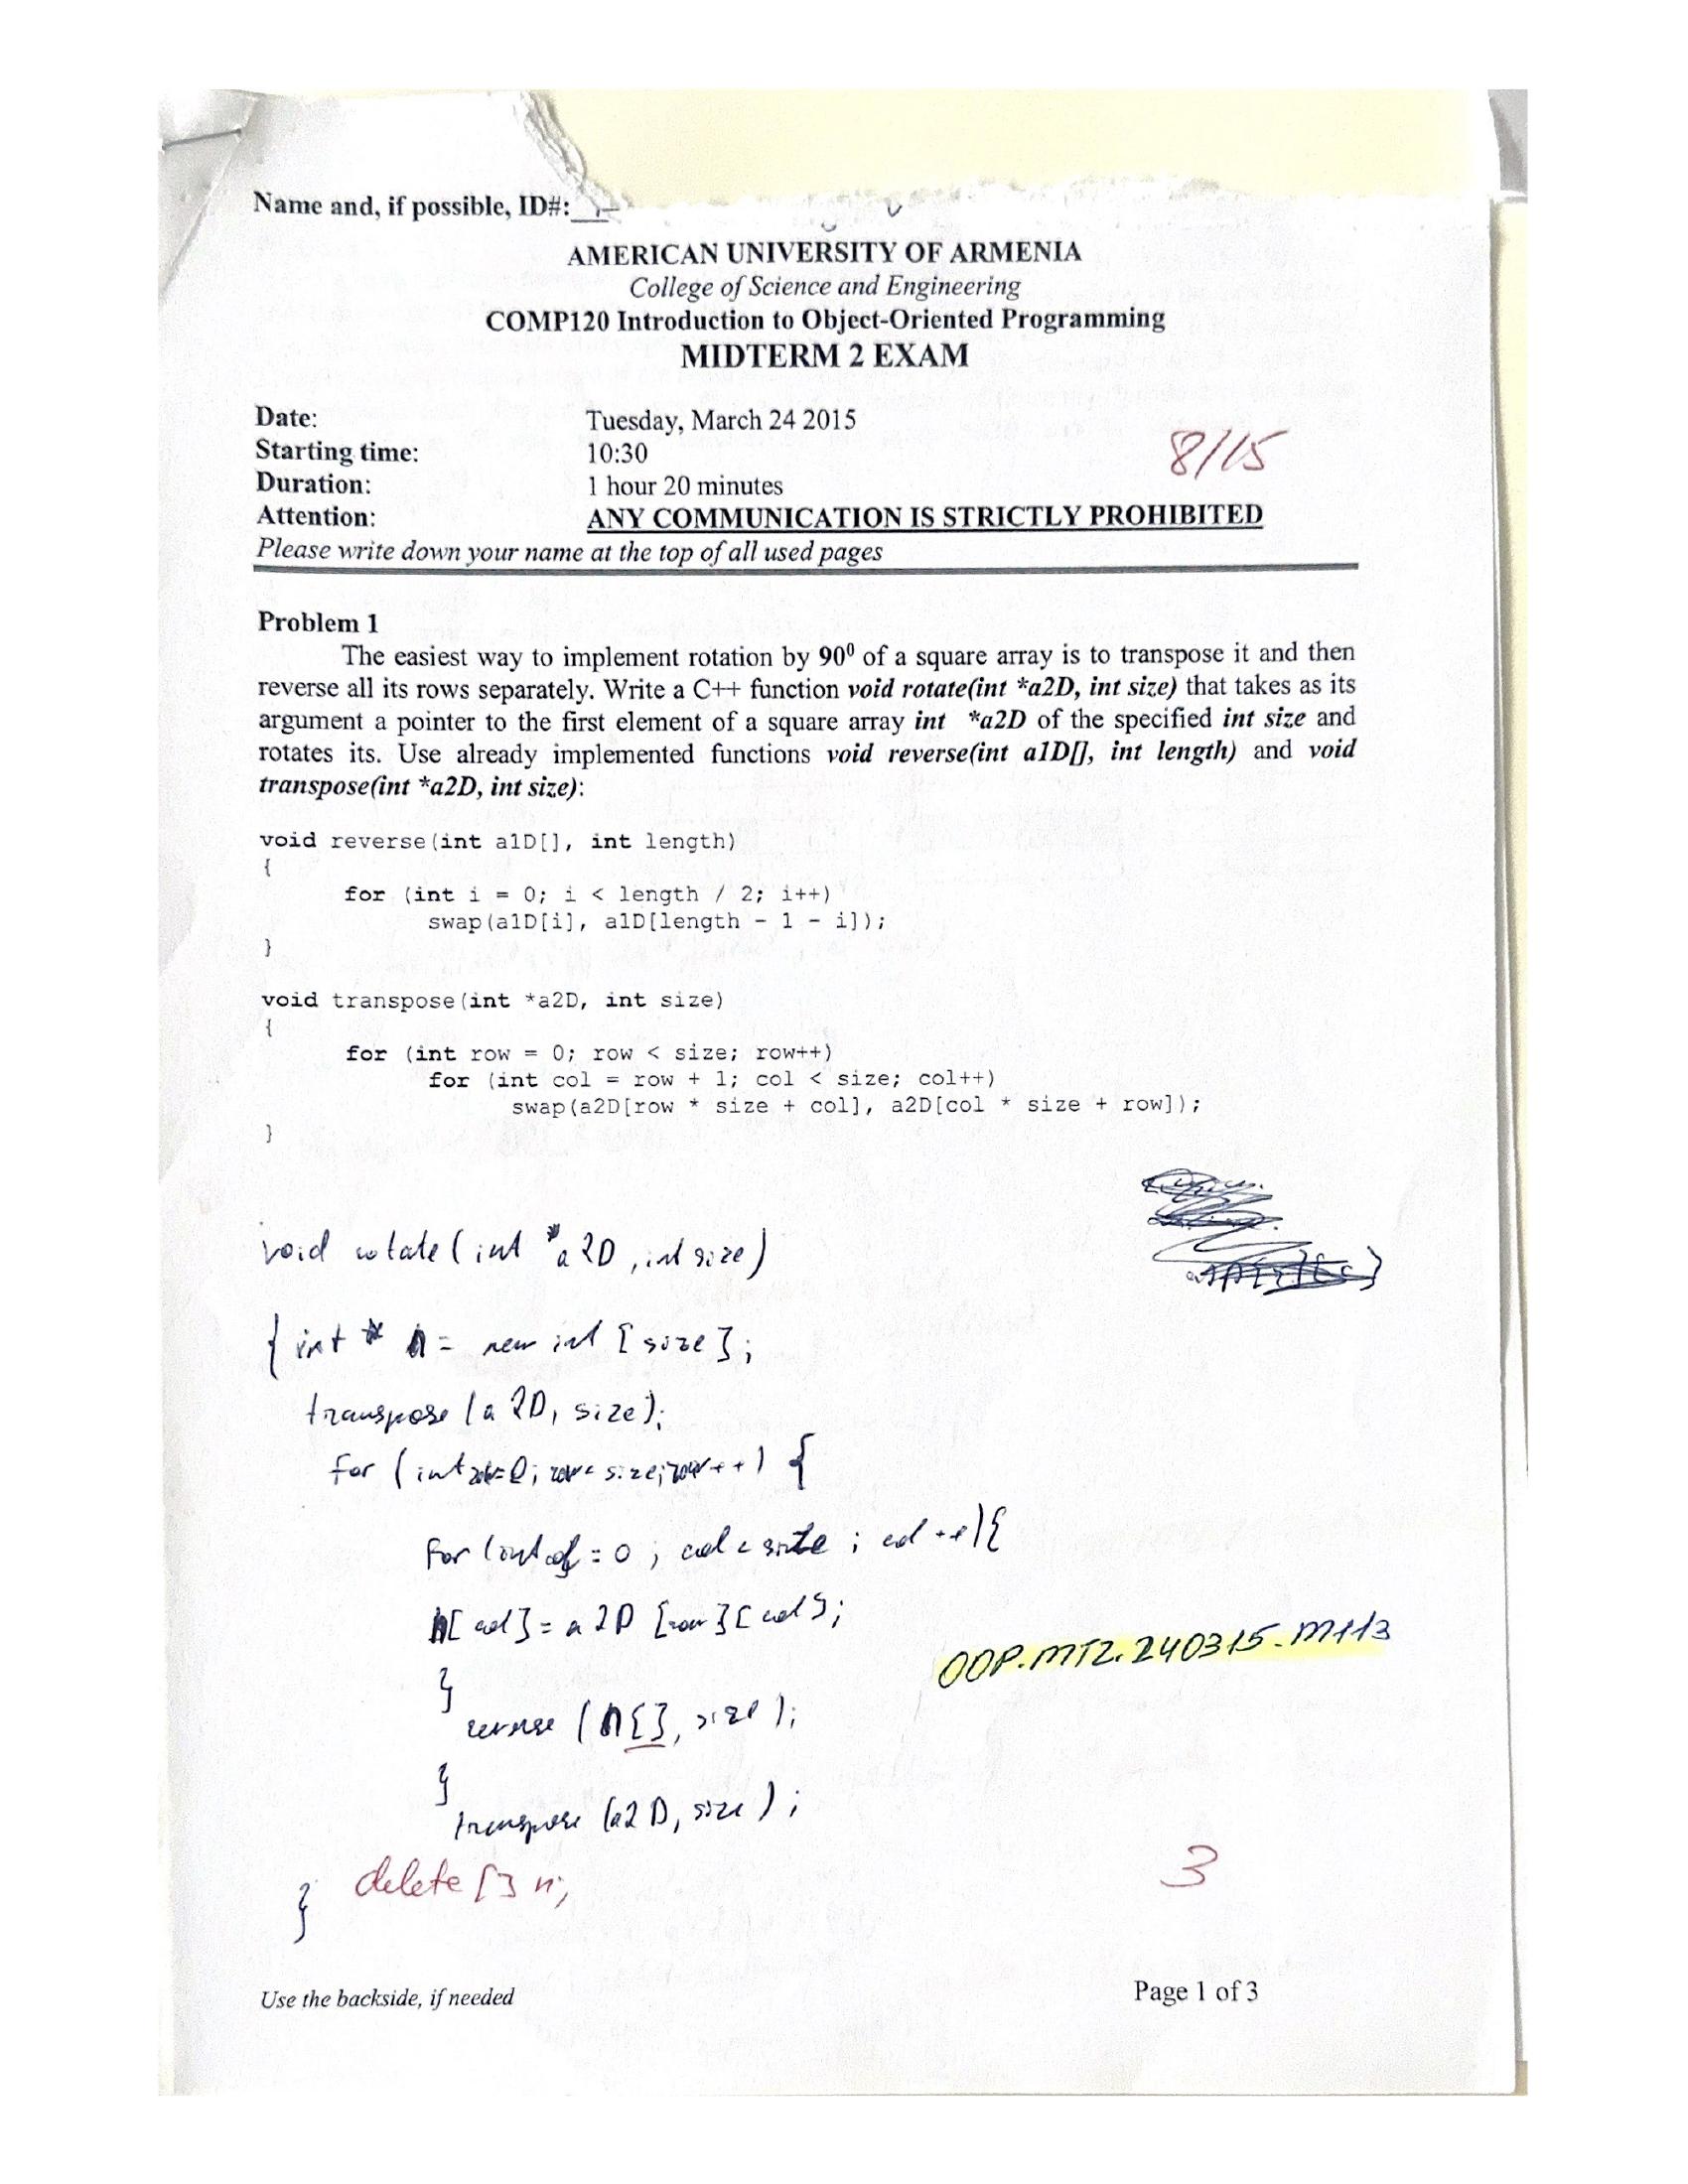 Name and, if possible, ID#:
AMERICAN UNIVERSITY OF ARMENIA
College of Science and Engineering
COMP120 Introduction to Object-Oriented Programming
MIDTERM 2 EXAM
Date: Tuesday, March 24 2015
Starting time: 10:30
8/15
Duration: 1 hour 20 minutes
Attention: ANY COMMUNICATION IS STRICTLY PROHIBITED
Please write down your name at the top of all used pages
Problem 1
The easiest way to implement rotation by 90⁰ of a square array is to transpose it and then
reverse all its rows separately. Write a C++ function void rotate(int *a2D, int size) that takes as its
argument a pointer to the first element of a square array int *a2D of the specified int size and
rotates its. Use already implemented functions void reverse(int a1D[], int length) and void
transpose(int *a2D, int size):
void reverse(int a1D[], int length)
{
for (int i = 0; i < length / 2; i++)
swap(a1D[i], a1D[length - 1 - i]);
}
void transpose(int *a2D, int size)
{
for (int row = 0; row < size; row++)
for (int col = row + 1; col < size; col++)
swap(a2D[row * size + col], a2D[col * size + row]);
}
void rotate (int *a2D, int size)
{ int * n = new int [size];
transpose (a2D, size);
for (int row=0; row< size; row++) {
for (int col = 0; col < size; col ++) {
n[col] = a2D [row][col];
}
OOP.MT2.240315.M113
reverse (n[], size);
}
transpose (a2D, size);
delete [] n;
3
}
Use the backside, if needed
Page 1 of 3